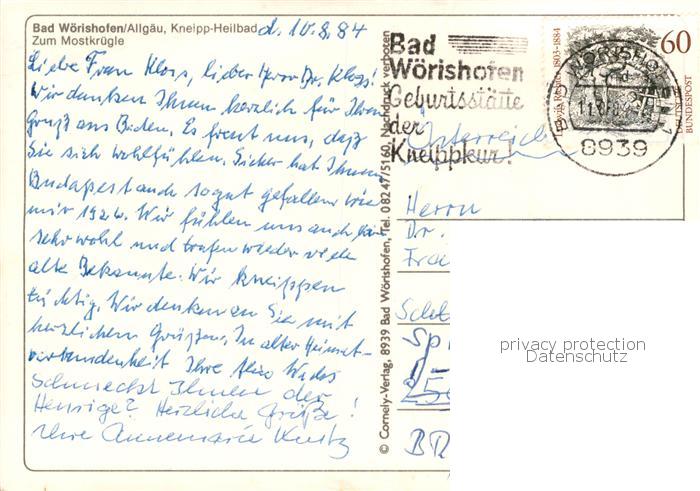 Bad Wörishofen/Allgäu, Kneipp-Heilbad
Zum Mostkrügle
d. 10.8.84
Liebe Frau Kloss, lieber Herr Dr. Kloss!
Wir danken Ihnen herzlich für Ihren
Gruß aus Baden. Es freut uns, daß
Sie sich wohlfühlen. Sicher hat Ihnen
Budapest auch so gut gefallen wie
mir 1926. Wir fühlen uns auch hier
sehr wohl und trafen wieder viele
alte Bekannte. Wir kneippen
tüchtig. Wir denken an Sie mit
herzlichen Grüßen. In alter Heimat-
verbundenheit Ihre
Schmeckt Ihnen der
Heurige? Herzliche Grüße!
Ihre Annemarie
© Cornely-Verlag, 8939 Bad Wörishofen, Tel. 08247/5160, Nachdruck verboten
Bad
Wörishofen
Geburtsstätte
der
Kneippkur!
Österreich
60
1803-1884
DEUTSCHE
BUNDESPOST
8939
Herrn
Dr.
privacy protection
Datenschutz